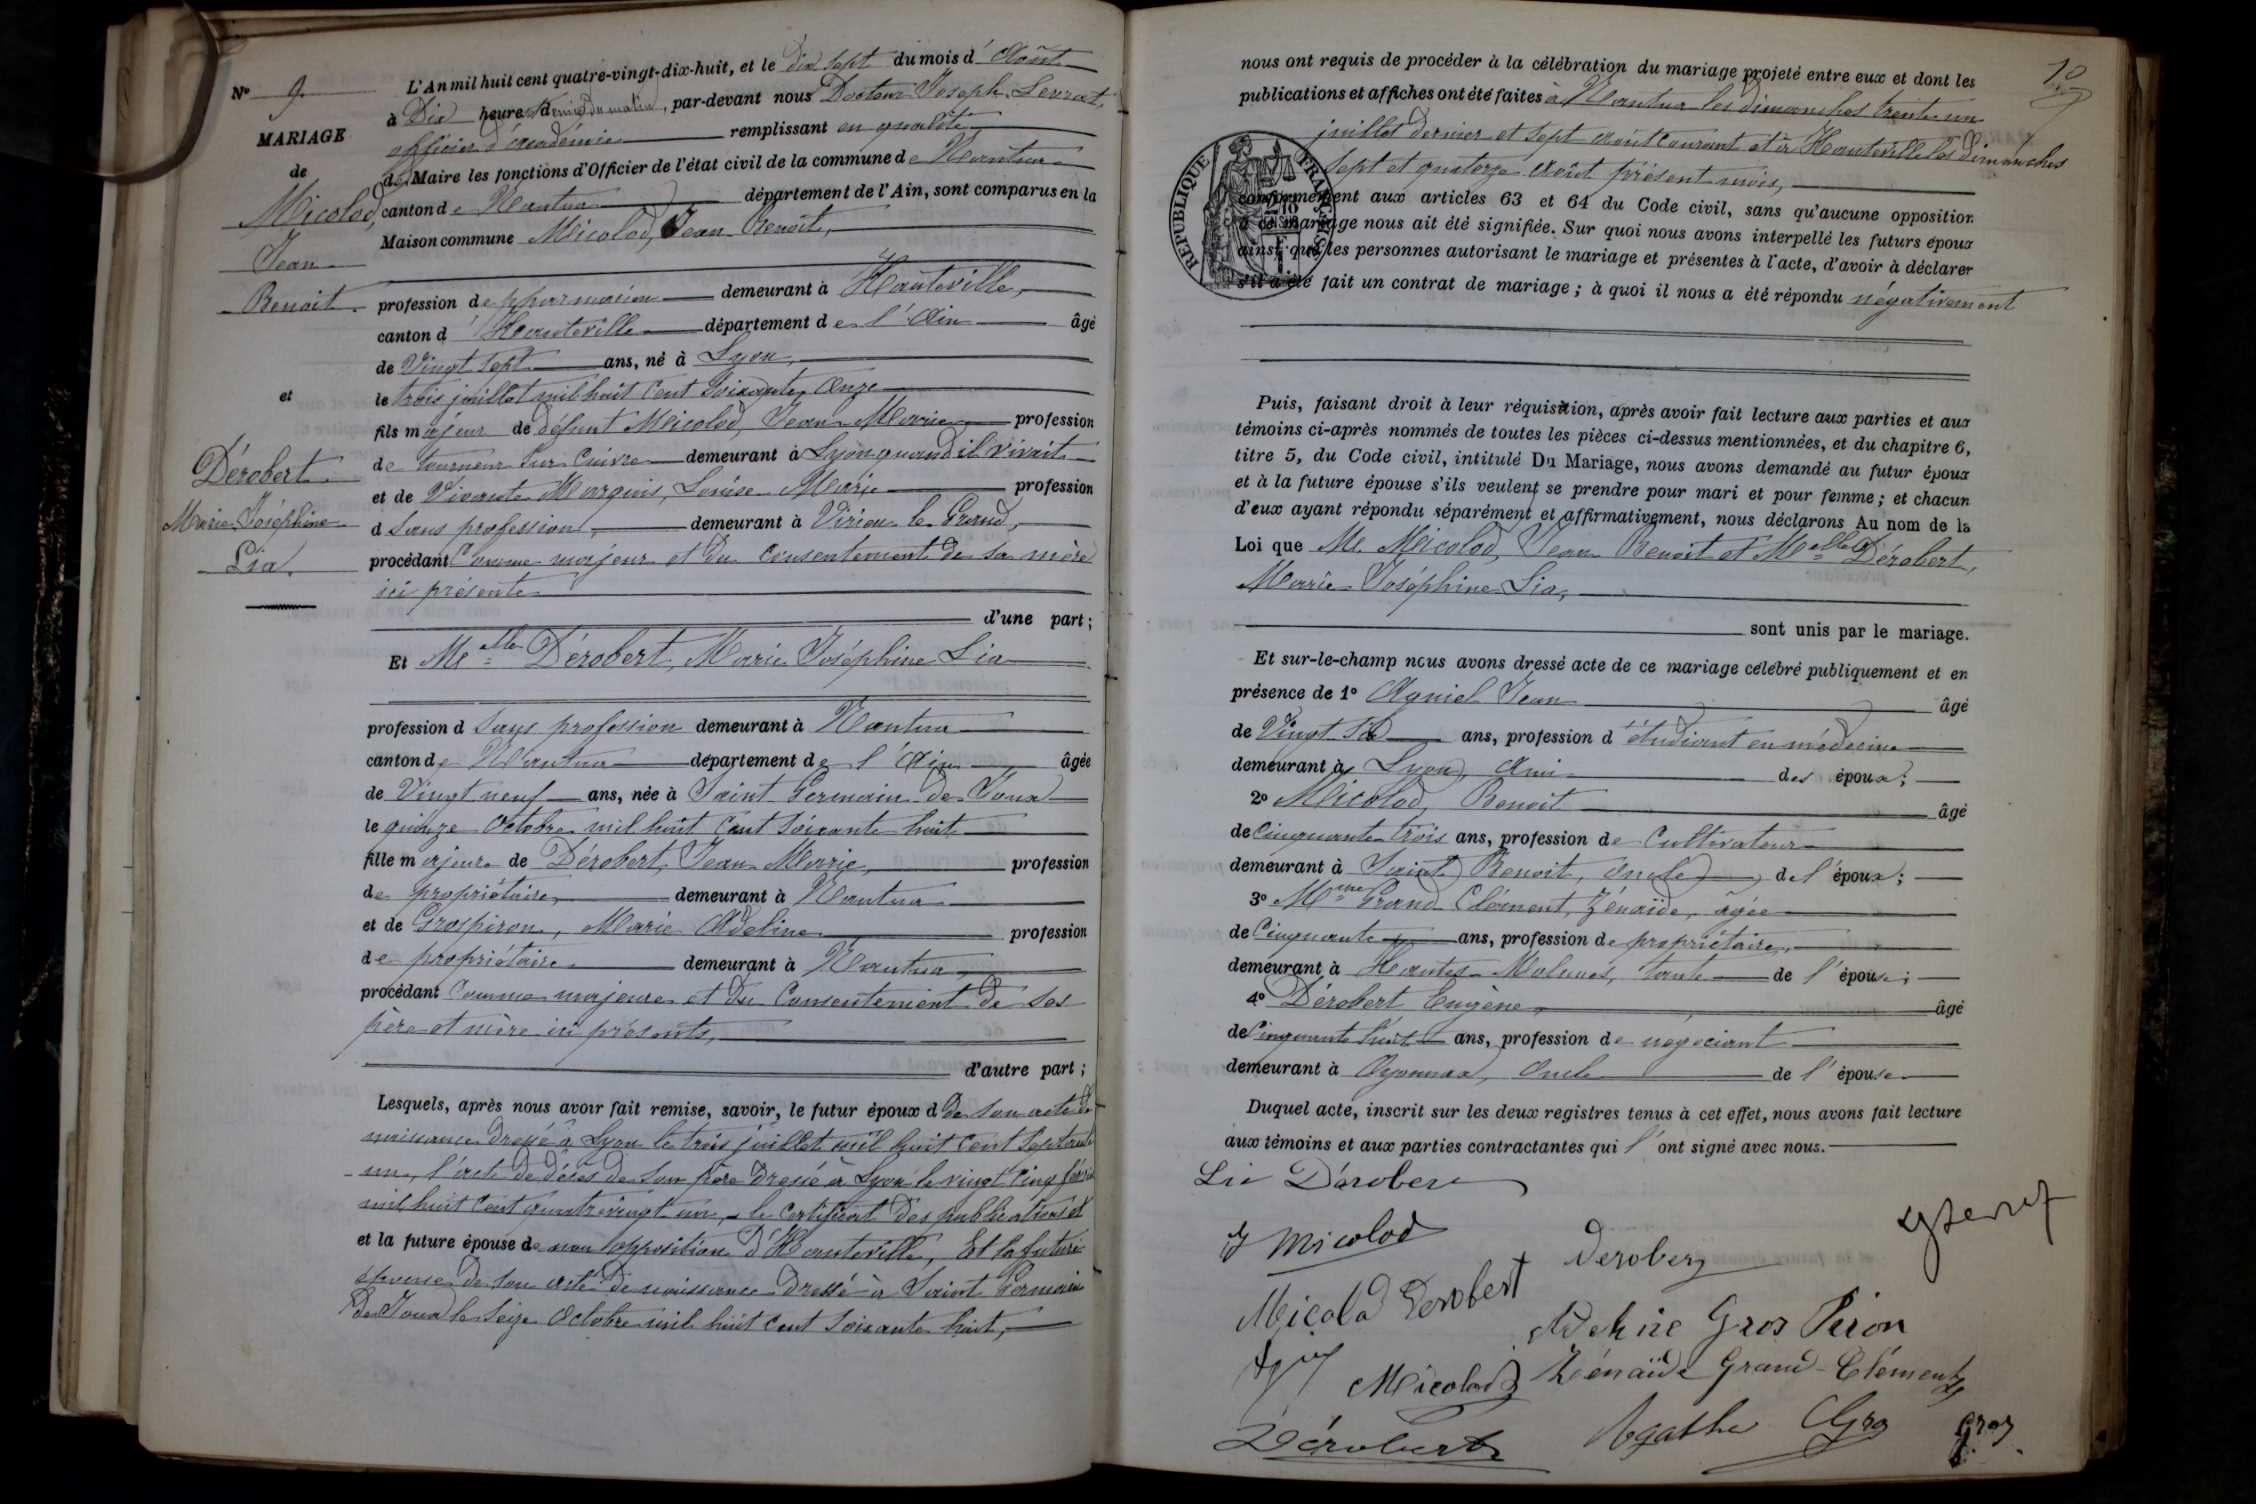 N° 9.
MARIAGE
de
Micolod,
Jean
Benoit.
et
Dérobert
Marie Joséphine
Lia.
L'An mil huit cent quatre-vingt-dix-huit, et le dix sept du mois d'Août
à Dix heures du matin, par-devant nous Docteur Joseph Levrat,
officier d'académie remplissant en qualité
de Maire les fonctions d'Officier de l'état civil de la commune de Nantua
canton de Nantua département de l'Ain, sont comparus en la
Maison commune Micolod, Jean Benoit,
profession de pharmacien demeurant à Hauteville,
canton d'Hauteville département de l'Ain âgé
de Vingt sept ans, né à Lyon,
le trois juillet mil huit cent soixante onze
fils majeur de défunt Micolod, Jean Marie profession
de tourneur sur cuivre demeurant à Lyon quand il vivait
et de Vivante Marguis, Louise Marie profession
d sans profession, demeurant à Virieu le Grand,
procédant comme majeur et du consentement de sa mère
ici présente
d'une part;
Et Melle Dérobert, Marie Joséphine Lia
profession d sans profession demeurant à Nantua
canton de Nantua département de l'Ain âgée
de Vingt neuf ans, née à Saint Germain de Joux
le quinze Octobre mil huit cent soixante huit
fille majeure de Dérobert, Jean Marie, profession
de propriétaire, demeurant à Nantua
et de Grospiron, Marie Adeline profession
de propriétaire demeurant à Nantua
procédant comme majeure et du consentement de ses
père et mère ici présents,
d'autre part;
Lesquels, après nous avoir fait remise, savoir, le futur époux d de son acte de
naissance dressé à Lyon le trois juillet mil huit cent septante
un, l'acte de décès de son père dressé à Lyon le vingt cinq
mil huit cent quatrevingt un, le certificat des publications et
et la future épouse de non opposition d'Hauteville, Et la future
épouse de son acte de naissance dressé à Saint Germain
de Joux le seize Octobre mil huit cent soixante huit,
10
nous ont requis de procéder à la célébration du mariage projeté entre eux et dont les
publications et affiches ont été faites à Nantua les dimanches trente un
juillet dernier et sept août courant et à Hauteville les dimanches
sept et quatorze Août présent mois,
conformément aux articles 63 et 64 du Code civil, sans qu'aucune opposition
à ce mariage nous ait été signifiée. Sur quoi nous avons interpellé les futurs époux
ainsi que les personnes autorisant le mariage et présentes à l'acte, d'avoir à déclarer
s'il a été fait un contrat de mariage; à quoi il nous a été répondu négativement
RÉPUBLIQUE FRANÇAISE
Puis, faisant droit à leur réquisition, après avoir fait lecture aux parties et aux
témoins ci-après nommés de toutes les pièces ci-dessus mentionnées, et du chapitre 6,
titre 5, du Code civil, intitulé Du Mariage, nous avons demandé au futur époux
et à la future épouse s'ils veulent se prendre pour mari et pour femme; et chacun
d'eux ayant répondu séparément et affirmativement, nous déclarons Au nom de la
Loi que M. Micolod, Jean Benoit et Melle Dérobert,
Marie Joséphine Lia,
sont unis par le mariage.
Et sur-le-champ nous avons dressé acte de ce mariage célébré publiquement et en
présence de 1° Agniel Jean âgé
de Vingt ans, profession d'étudiant en médecine
demeurant à Lyon, Ami des époux;
2° Micolod, Benoit âgé
de Cinquante trois ans, profession de Cultivateur
demeurant à Saint Benoit, oncle de l'époux;
3° Mme Grand Clément, Zénaïde, âgée
de Cinquante ans, profession de propriétaire,
demeurant à Hautes Molunes, tante de l'épouse;
4° Dérobert Eugène, âgé
de Cinquante huit ans, profession de négociant
demeurant à Oyonnax, Oncle de l'épouse
Duquel acte, inscrit sur les deux registres tenus à cet effet, nous avons fait lecture
aux témoins et aux parties contractantes qui l'ont signé avec nous.
Lia Dérobert
J Micolod
Derobert
Micolod Derobert
Adeline Gros Piron
Micolod
Zénaïde Grand-Clément
Dérobert
Agathe Gros
Gros